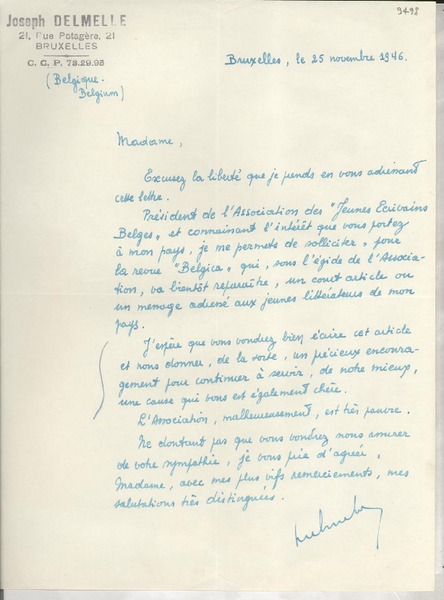 3498
Joseph DELMELLE
21, Rue Potagère, 21
BRUXELLES
C. C. P. 73.29.93
(Belgique.
Belgium)
Bruxelles, le 25 novembre 1946.
Madame,
Excusez la liberté que je prends en vous adressant
cette lettre.
Président de l'Association des "Jeunes Ecrivains
Belges" et connaissant l'intérêt que vous portez
à mon pays, je me permets de solliciter, pour
la revue "Belgica" qui, sous l'égide de l'Associa-
tion, va bientôt reparaître, un court article ou
un message adressé aux jeunes littérateurs de mon
pays.
J'espère que vous voudrez bien écrire cet article
et nous donner, de la sorte, un précieux encoura-
gement pour continuer à servir, de notre mieux,
une cause qui vous est également chère.
L'Association, malheureusement, est très pauvre.
Ne doutant pas que vous voudrez nous assurer
de votre sympathie, je vous prie d'agréer,
Madame, avec mes plus vifs remerciements, mes
salutations très distinguées.